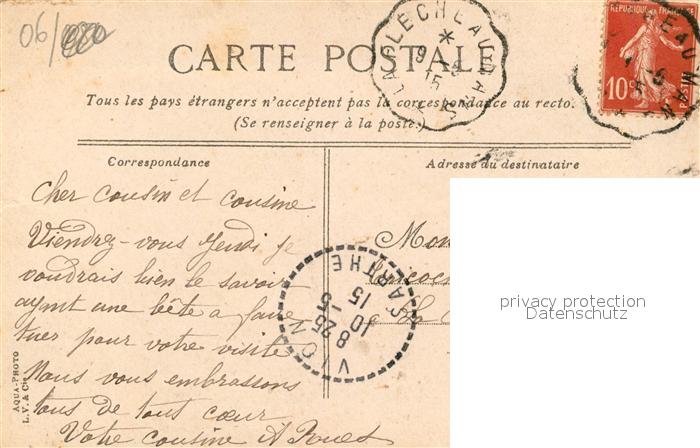 06/
CARTE POSTALE
Tous les pays étrangers n'acceptent pas la correspondance au recto.
(Se renseigner à la poste.)
Correspondance
Adresse du destinataire
Cher cousin et cousine
Viendrez-vous Jeudi je
voudrais bien le savoir
aymt une bête a faire
tuer pour votre visite
Nous vous embrassons
tous de tout cœur
Votre cousine A
Mon
LA FLECHE AU MANS
9 -5
15
RÉPUBLIQUE FRANÇAISE
10
POSTES
VION
8 25
10 -5
15
SARTHE
AQUA-PHOTO
L.V. & Cie
privacy protection
Datenschutz